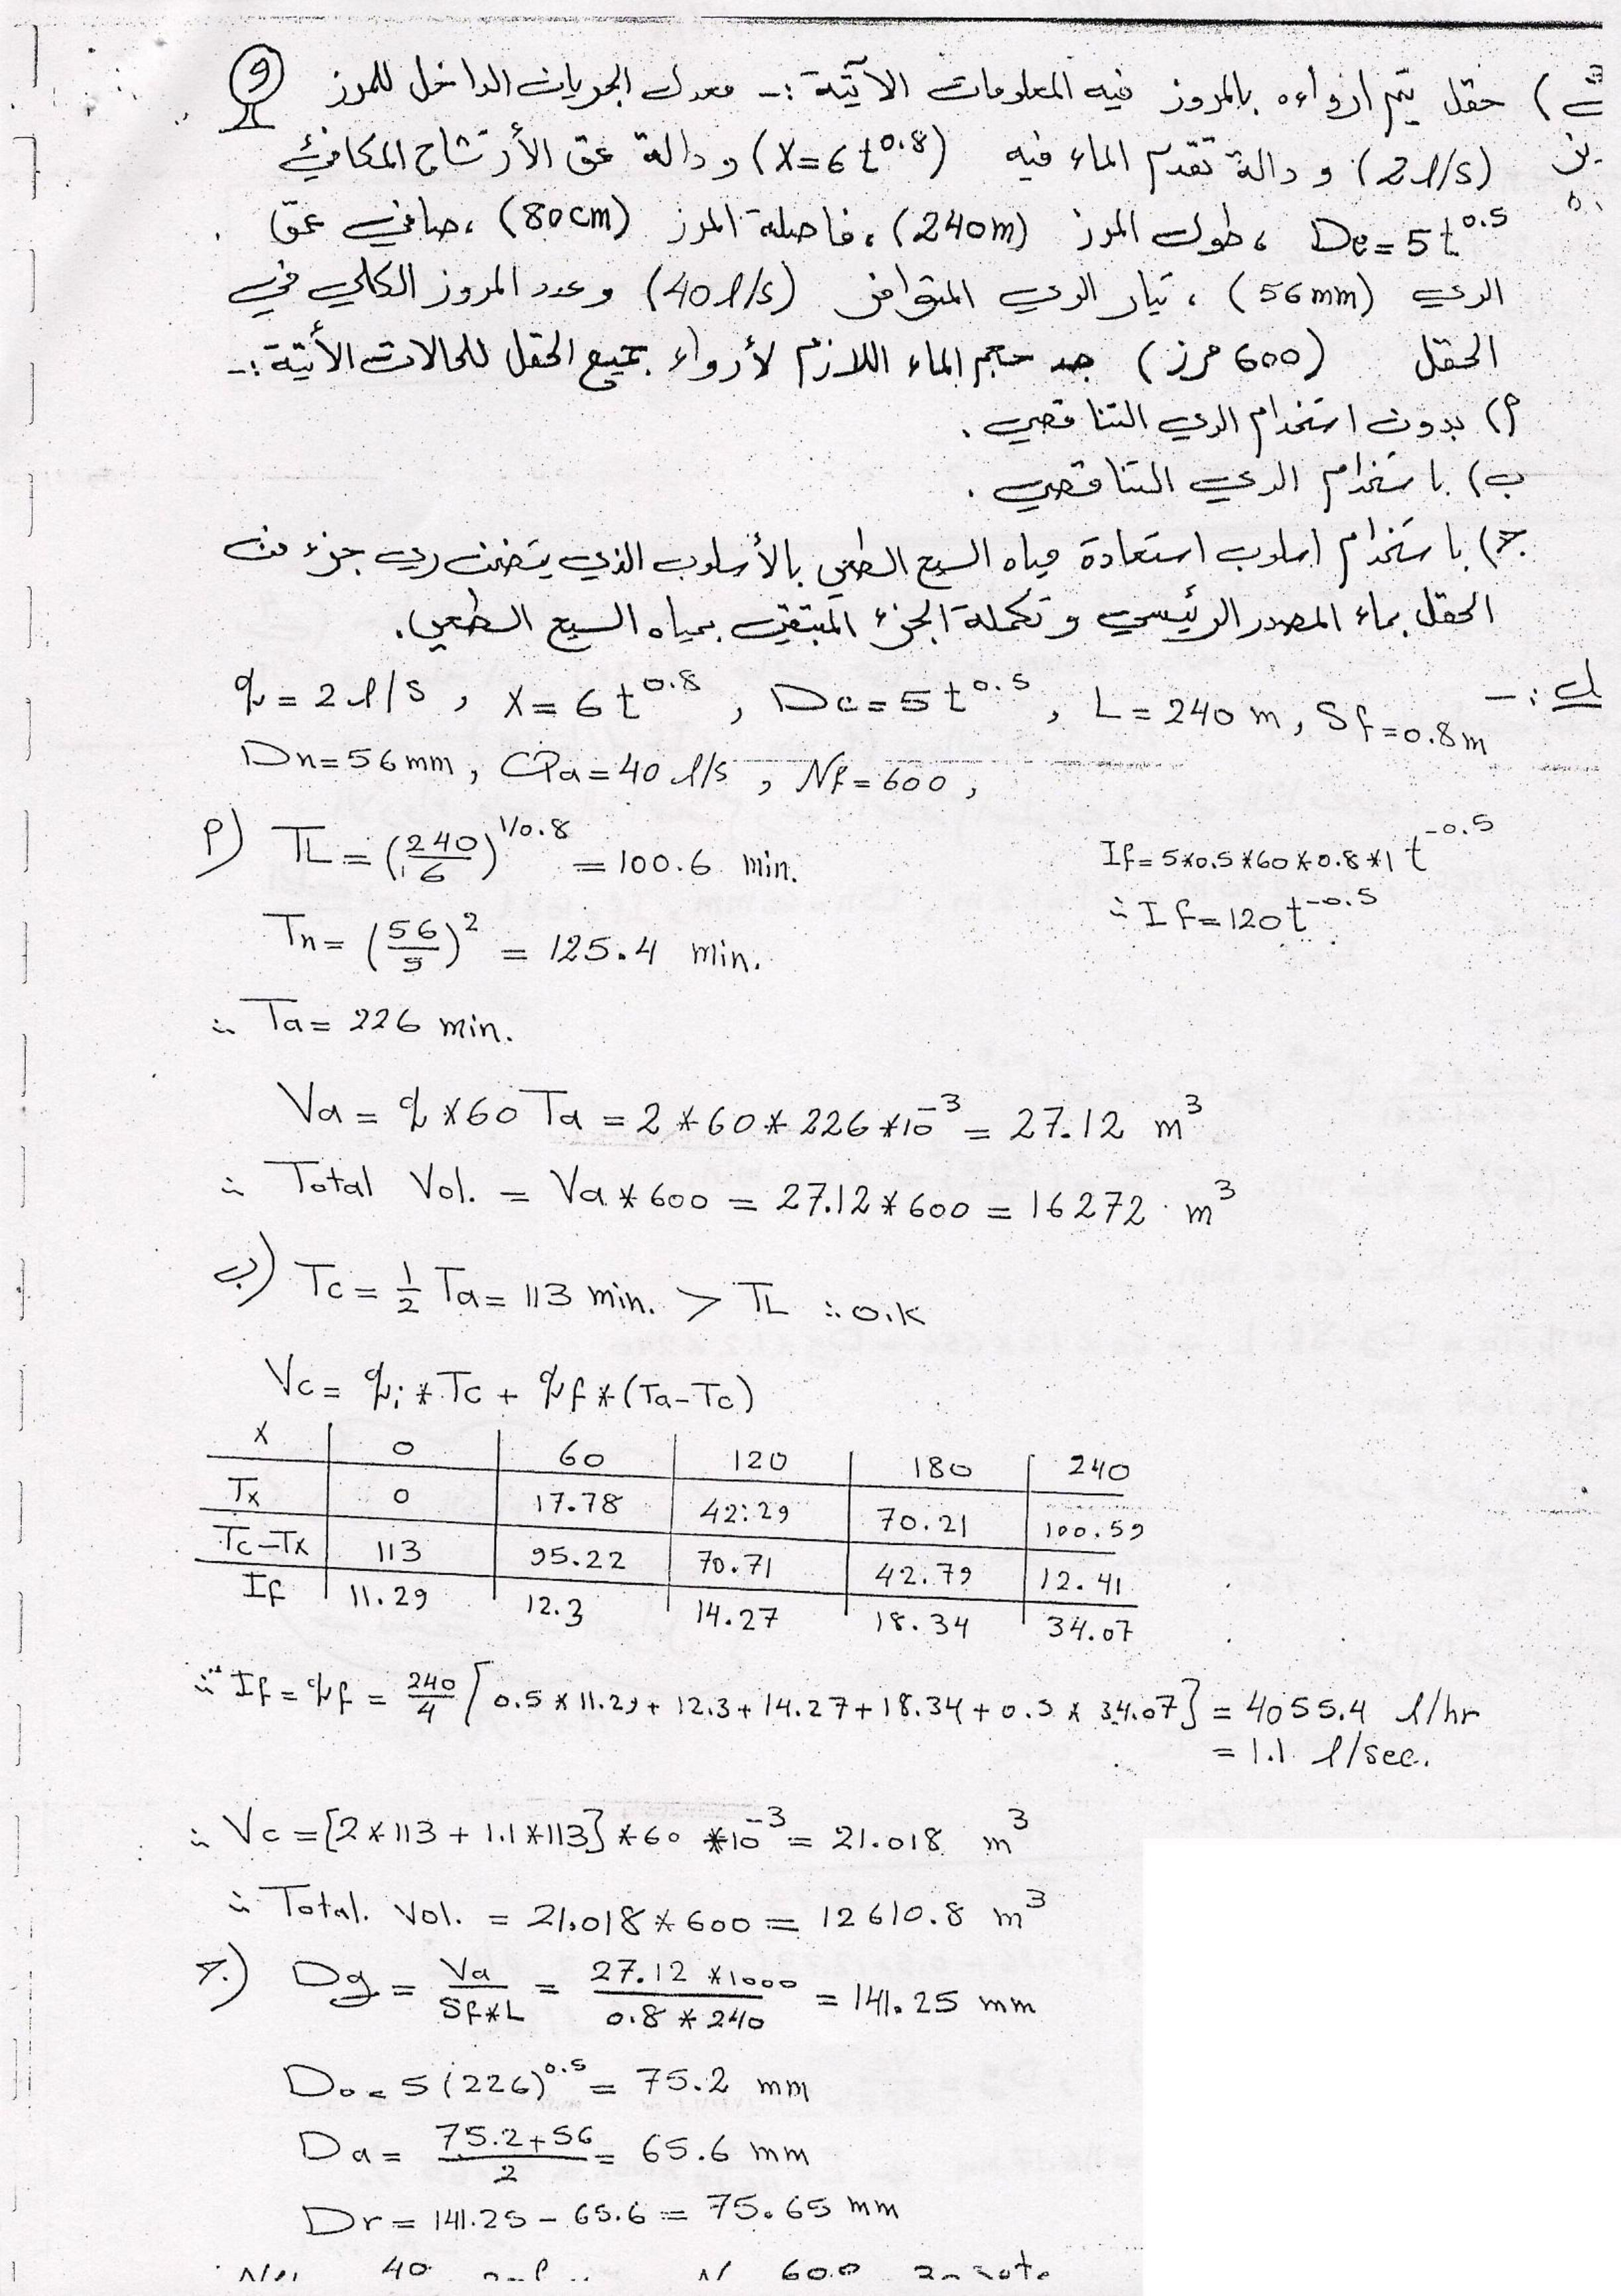 ٩
حقل يتم ارواءه بالمروز فيه المعلومات الآتية :- معدل الجريان الداخل للمرز
(2 l/s) و دالة تقدم الماء فيه (X=6t^0.8) و دالة عمق الأرتشاح المكافئ
De=5t^0.5 ، طول المرز (240m) ، فاصلة المرز (80cm) ، صافي عمق
الري (56mm) ، تيار الري المتوافر (40 l/s) وعدد المروز الكلي في
الحقل (600 مرز) جد حجم الماء اللازم لأرواء جميع الحقل للحالات الأتية :-
م) بدون استخدام الري التناقصي .
ب) باستخدام الري التناقصي .
ج) باستخدام اسلوب استعادة مياه السيح السطحي بالأسلوب الذي يتضمن ري جزء من
الحقل بماء المصدر الرئيسي و تكملة الجزء المتبقي بمياه السيح السطحي .
q = 2 l/s , X = 6t^0.8 , De = 5t^0.5 , L = 240 m , Sf = 0.8 m
Dn = 56 mm , Qa = 40 l/s , Nf = 600 ,
م) TL = (240/6)^1/0.8 = 100.6 min.
If = 5*0.5*60*0.8*1 t^-0.5
∴ If = 120t^-0.5
Tn = (56/5)^2 = 125.4 min.
∴ Ta = 226 min.
Va = q*60 Ta = 2*60*226*10^-3 = 27.12 m^3
∴ Total Vol. = Va*600 = 27.12*600 = 16272 m^3
ب) Tc = 1/2 Ta = 113 min. > TL ∴ o.k
Vc = qi*Tc + qf*(Ta-Tc)
X 0 60 120 180 240
Tx 0 17.78 42.29 70.21 100.59
Tc-Tx 113 95.22 70.71 42.79 12.41
If 11.29 12.3 14.27 18.34 34.07
∴ If = qf = 240/4 [0.5*11.29+12.3+14.27+18.34+0.5*34.07] = 4055.4 l/hr
= 1.1 l/sec.
∴ Vc = [2*113 + 1.1*113]*60*10^-3 = 21.018 m^3
∴ Total. Vol. = 21.018*600 = 12610.8 m^3
ج) Dg = Va/Sf*L = 27.12*1000/0.8*240 = 141.25 mm
Do = 5(226)^0.5 = 75.2 mm
Da = 75.2+56/2 = 65.6 mm
Dr = 141.25 - 65.6 = 75.65 mm
40 600